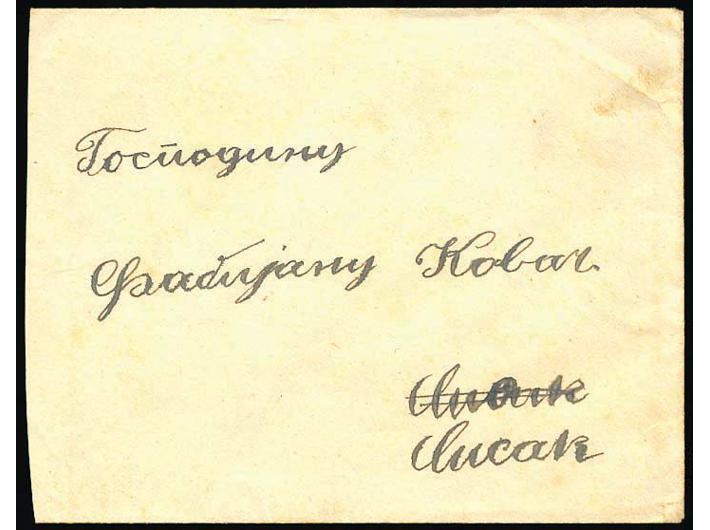 Господину
Фабијану Ковач.
Сисак